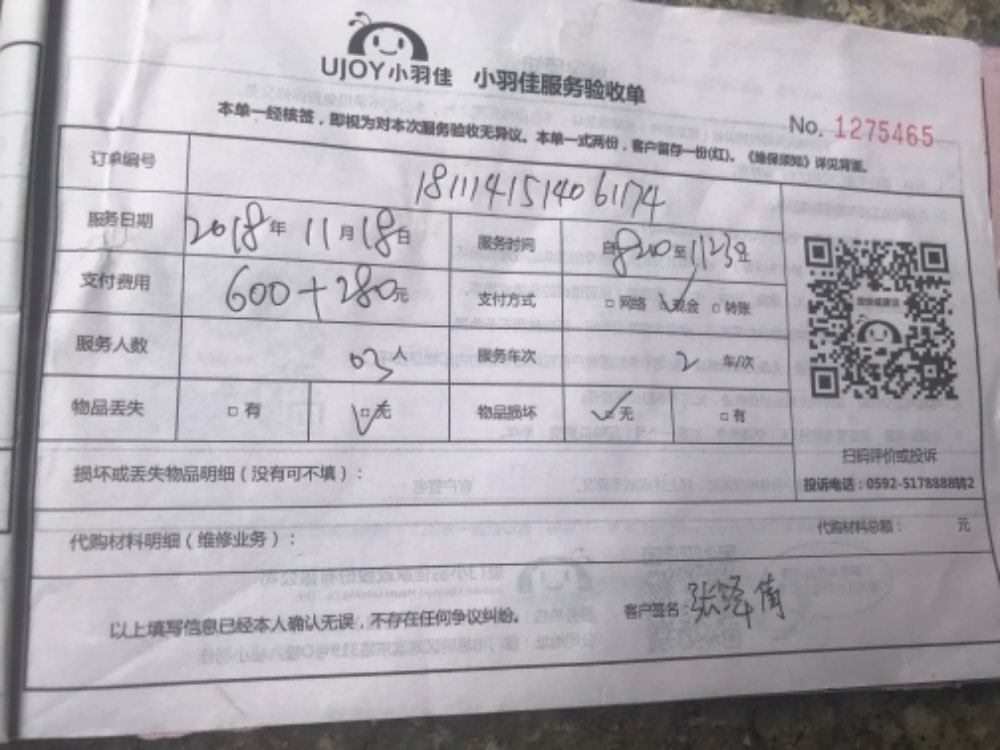 UJOY小羽佳 小羽佳服务验收单
No. 1275465
本单一经核签，即视为对本次服务验收无异议。本单一式两份，客户留存一份(红)。《维保须知》详见背面。
订单编号 1811141514061174
服务日期 2018年11月18日 服务时间 自820至1123止
支付费用 600+280元 支付方式 □网络 ☑现金 □转账
服务人数 03人 服务车次 2 车/次
物品丢失 □有 ☑无 物品损坏 ☑无 □有
扫码评价或投诉
投诉电话：0592-5178888转2
损坏或丢失物品明细（没有可不填）：
代购材料明细（维修业务）： 代购材料总额： 元
以上填写信息已经本人确认无误，不存在任何争议纠纷。 客户签名：张泽倩